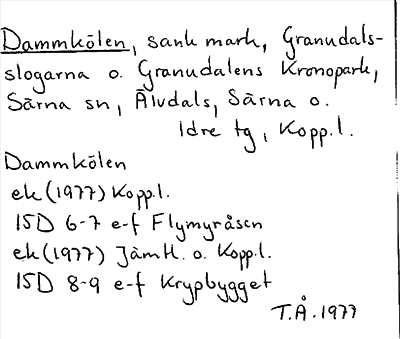 Dammkölen, sank mark, Granudals-
slogarna o. Granudalens Kronopark,
Särna sn, Älvdals, Särna o.
Idre tg, Kopp.l.
Dammkölen
ek (1977) Kopp.l.
15D 6-7 e-f Flymyråsen
ek (1977) Jämtl. o. Kopp.l.
15D 8-9 e-f Krypbygget
T.Å. 1977